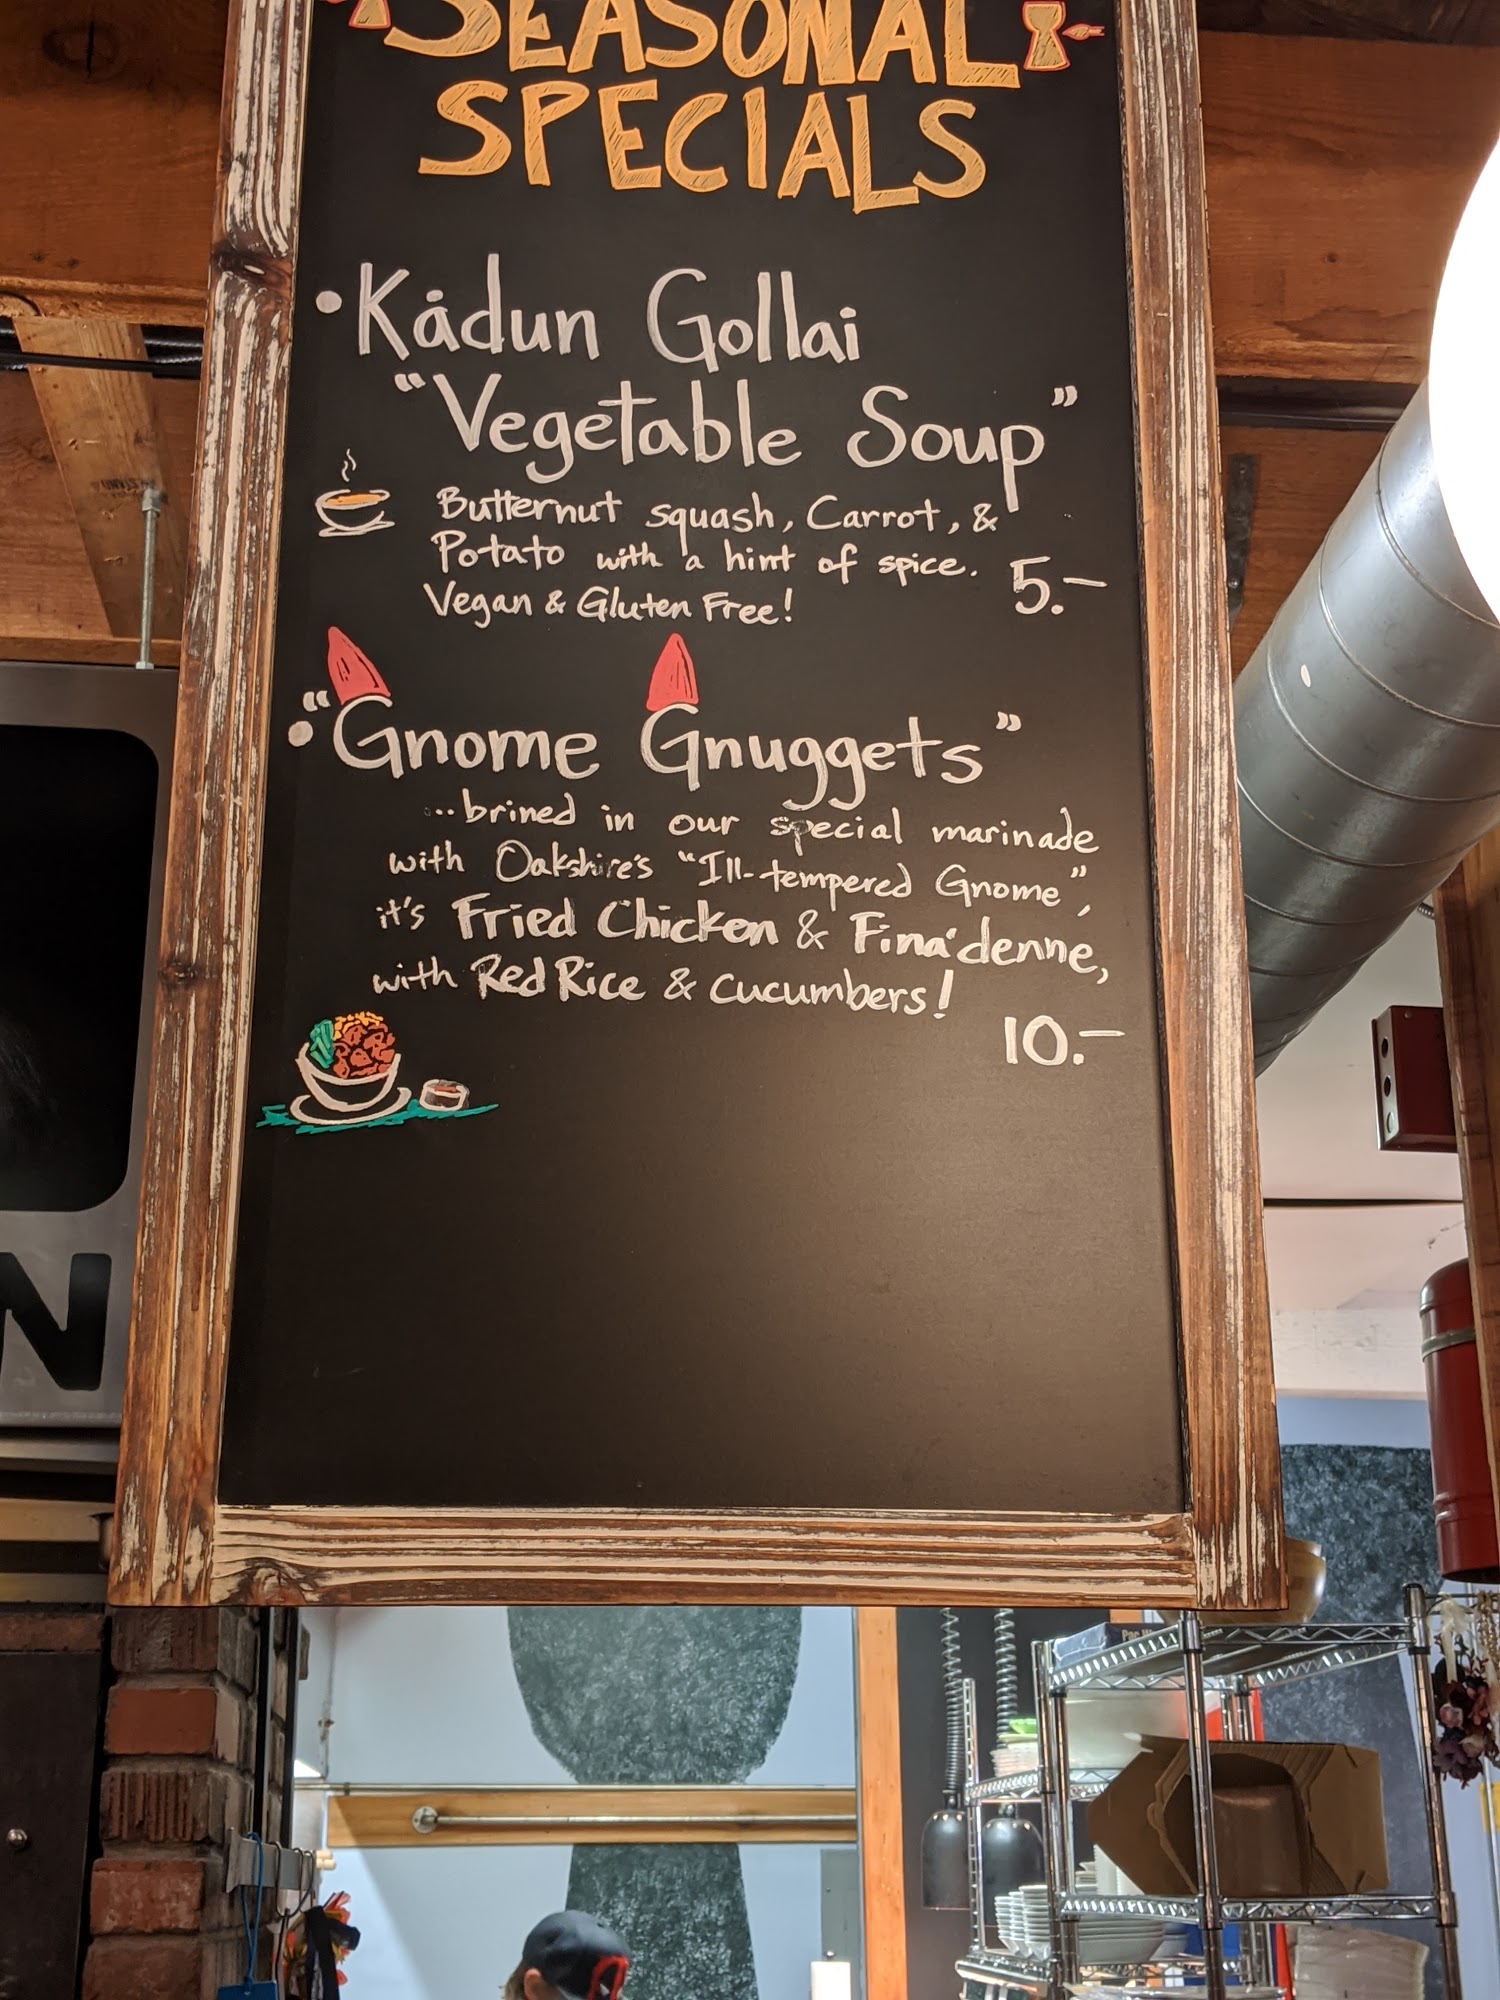 SEASONAL
SPECIALS
• Kådun Gollai
"Vegetable Soup"
Butternut squash, Carrot, &
Potato with a hint of spice.
Vegan & Gluten Free!
5.–
• "Gnome Gnuggets"
...brined in our special marinade
with Oakshire's "Ill-tempered Gnome",
it's Fried Chicken & Fina'denne,
with Red Rice & cucumbers!
10.–
N